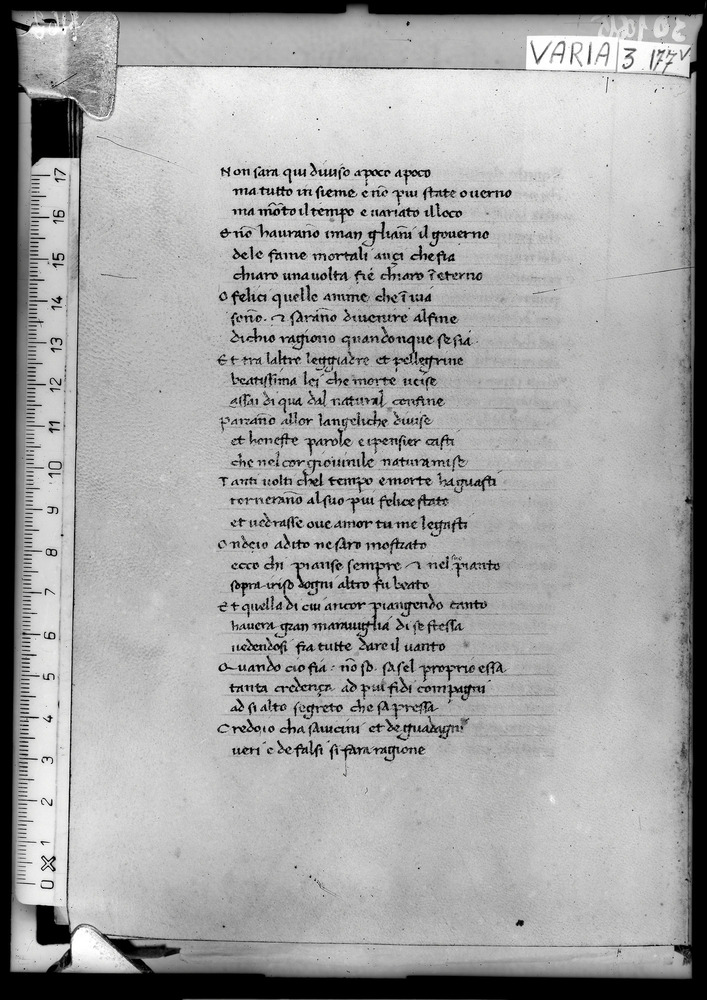 VARIA 3 177v
Non sara qui diuiso apoco apoco
ma tutto in sieme e nō piu state o uerno
ma mōto il tempo e uariato illoco
E nō haurāno iman gliāni il gouerno
dele fame mortali ançi chefia
chiaro una volta fie chiaro ī eterno
O felici quelle anime che ī uia
sono ⁊ sarāno diuenire alfine
dichio ragiono quandonque sesia
Et tra laltre leggiadre et pellegrine
beatissima lei che morte ucise
assai di qua dal natural confine
Parrāno allor langeliche diuise
et honeste parole e ipensier casti
che nel cor giouinile natura mise
Tanti uolti chel tempo e morte ha guasti
tornerāno al suo piu felice stato
et uedrasse oue amor tu me legasti
Ondeio adito ne saro mostrato
ecco chi pianse sempre ⁊ nel suo pianto
sopra iriso dogni altro fu beato
Et quella di cui ancor piangendo canto
hauera gran marauiglia di se stessa
uedendosi fra tutte dare il uanto
Quando cio fia nō so sasel proprio essa
tanta credença ad piu fidi compagni
ad si alto segreto che sapressa
Credoio cha sauicini et de guadagni
ueri e de falsi si fara ragione
17
16
15
14
13
12
11
10
9
8
7
6
5
4
3
2
1
0